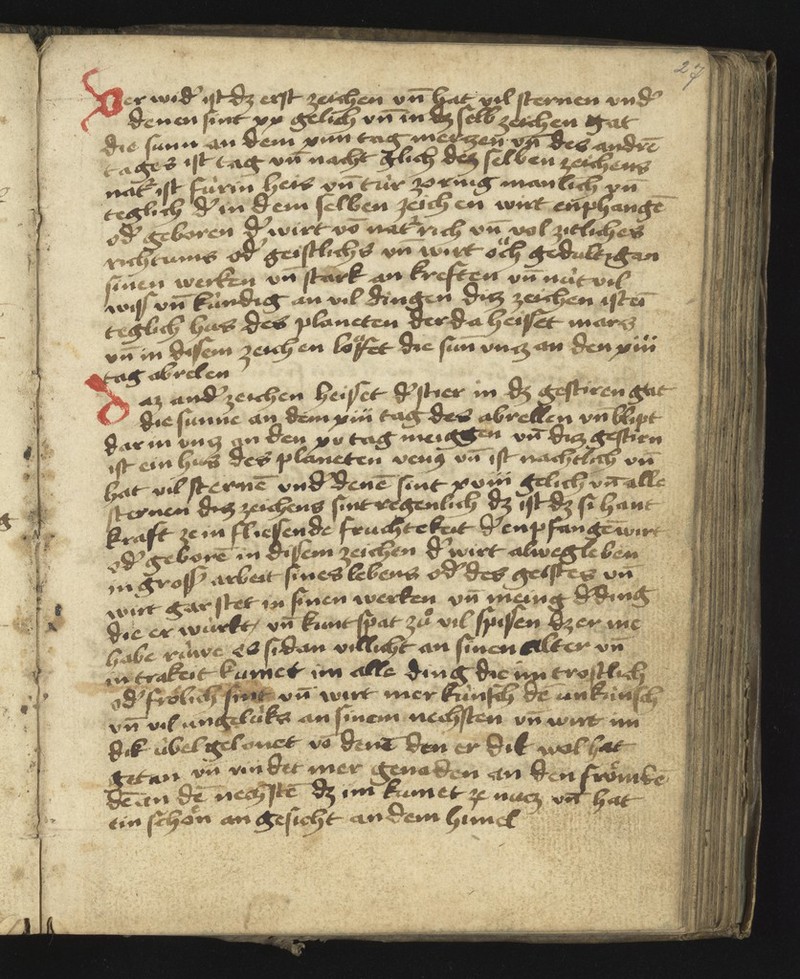 27
Der wid' ist dz erst zeichen vn̄ hat vil sternen vnd'
denen sint xx gelich vn̄ in dz selb zeichen gat
die sunn an dem xiiii tag mertzen vn̄ des andrē
tages ist tag vn̄ nacht glich dez selben zeichens
nat' ist fúrin heis vn̄ túr zornig manlich vn̄
teglich d' in dem selben zeichen wirt enphangē
od' geboren d' wirt vō nat' rich vn̄ vol zitliches
richtums od' geistlichs vn̄ wirt oͧch gedultig an
sinen werken vn̄ stark an kreften vn̄ nút vil
wiss vn̄ kúndig an vil dingen diz zeichen ist ein
teglich hus des planeten der da heisset mars
vn̄ in disem zeichen loͧffet die sun vntz an den xiii
tag abrelen
Daz and' zeichen heisset d' stier in dz gestiren gat
die sunne an dem xiii tag des abrellen vn̄ blipt
dar in vntz an den xv tag meiggen vn̄ diz gestirn
ist ein hus des planeten venus vn̄ ist nachtlich vn̄
hat vil sternē vnd' denē sint xviii gelich vn̄ alle
sternen diz zeichens sint regenlich dz ist dz si hant
kraft ze in fliessende fruchtekeit d' enpfangē wirt
od' geborē in dissem zeichen d' wirt alweg leben
in gross' arbeit sines lebens od' des geistes vn̄
wirt gar stet in sinen werken vn̄ meing d' ding
die er wúrkt vn̄ kunt spat zuͦ vil spissen dz er nie
habe ruwe es si dan villicht an sinen alter vn̄
in trakeit kumet im alle ding die im trostlich
od' frolich sint vn̄ wirt mer kúnsch dē unkúnsch
vn̄ vil ungelúks an sinem nechsten vn̄ wirt im
dik úbel gelonet vō denē den er dik wol hat
getan vn̄ vindet mer genaden an den frömdē
dē an dē nechstē dz im kumet ze nutz vn̄ hat
ein schön an gesicht an dem himel